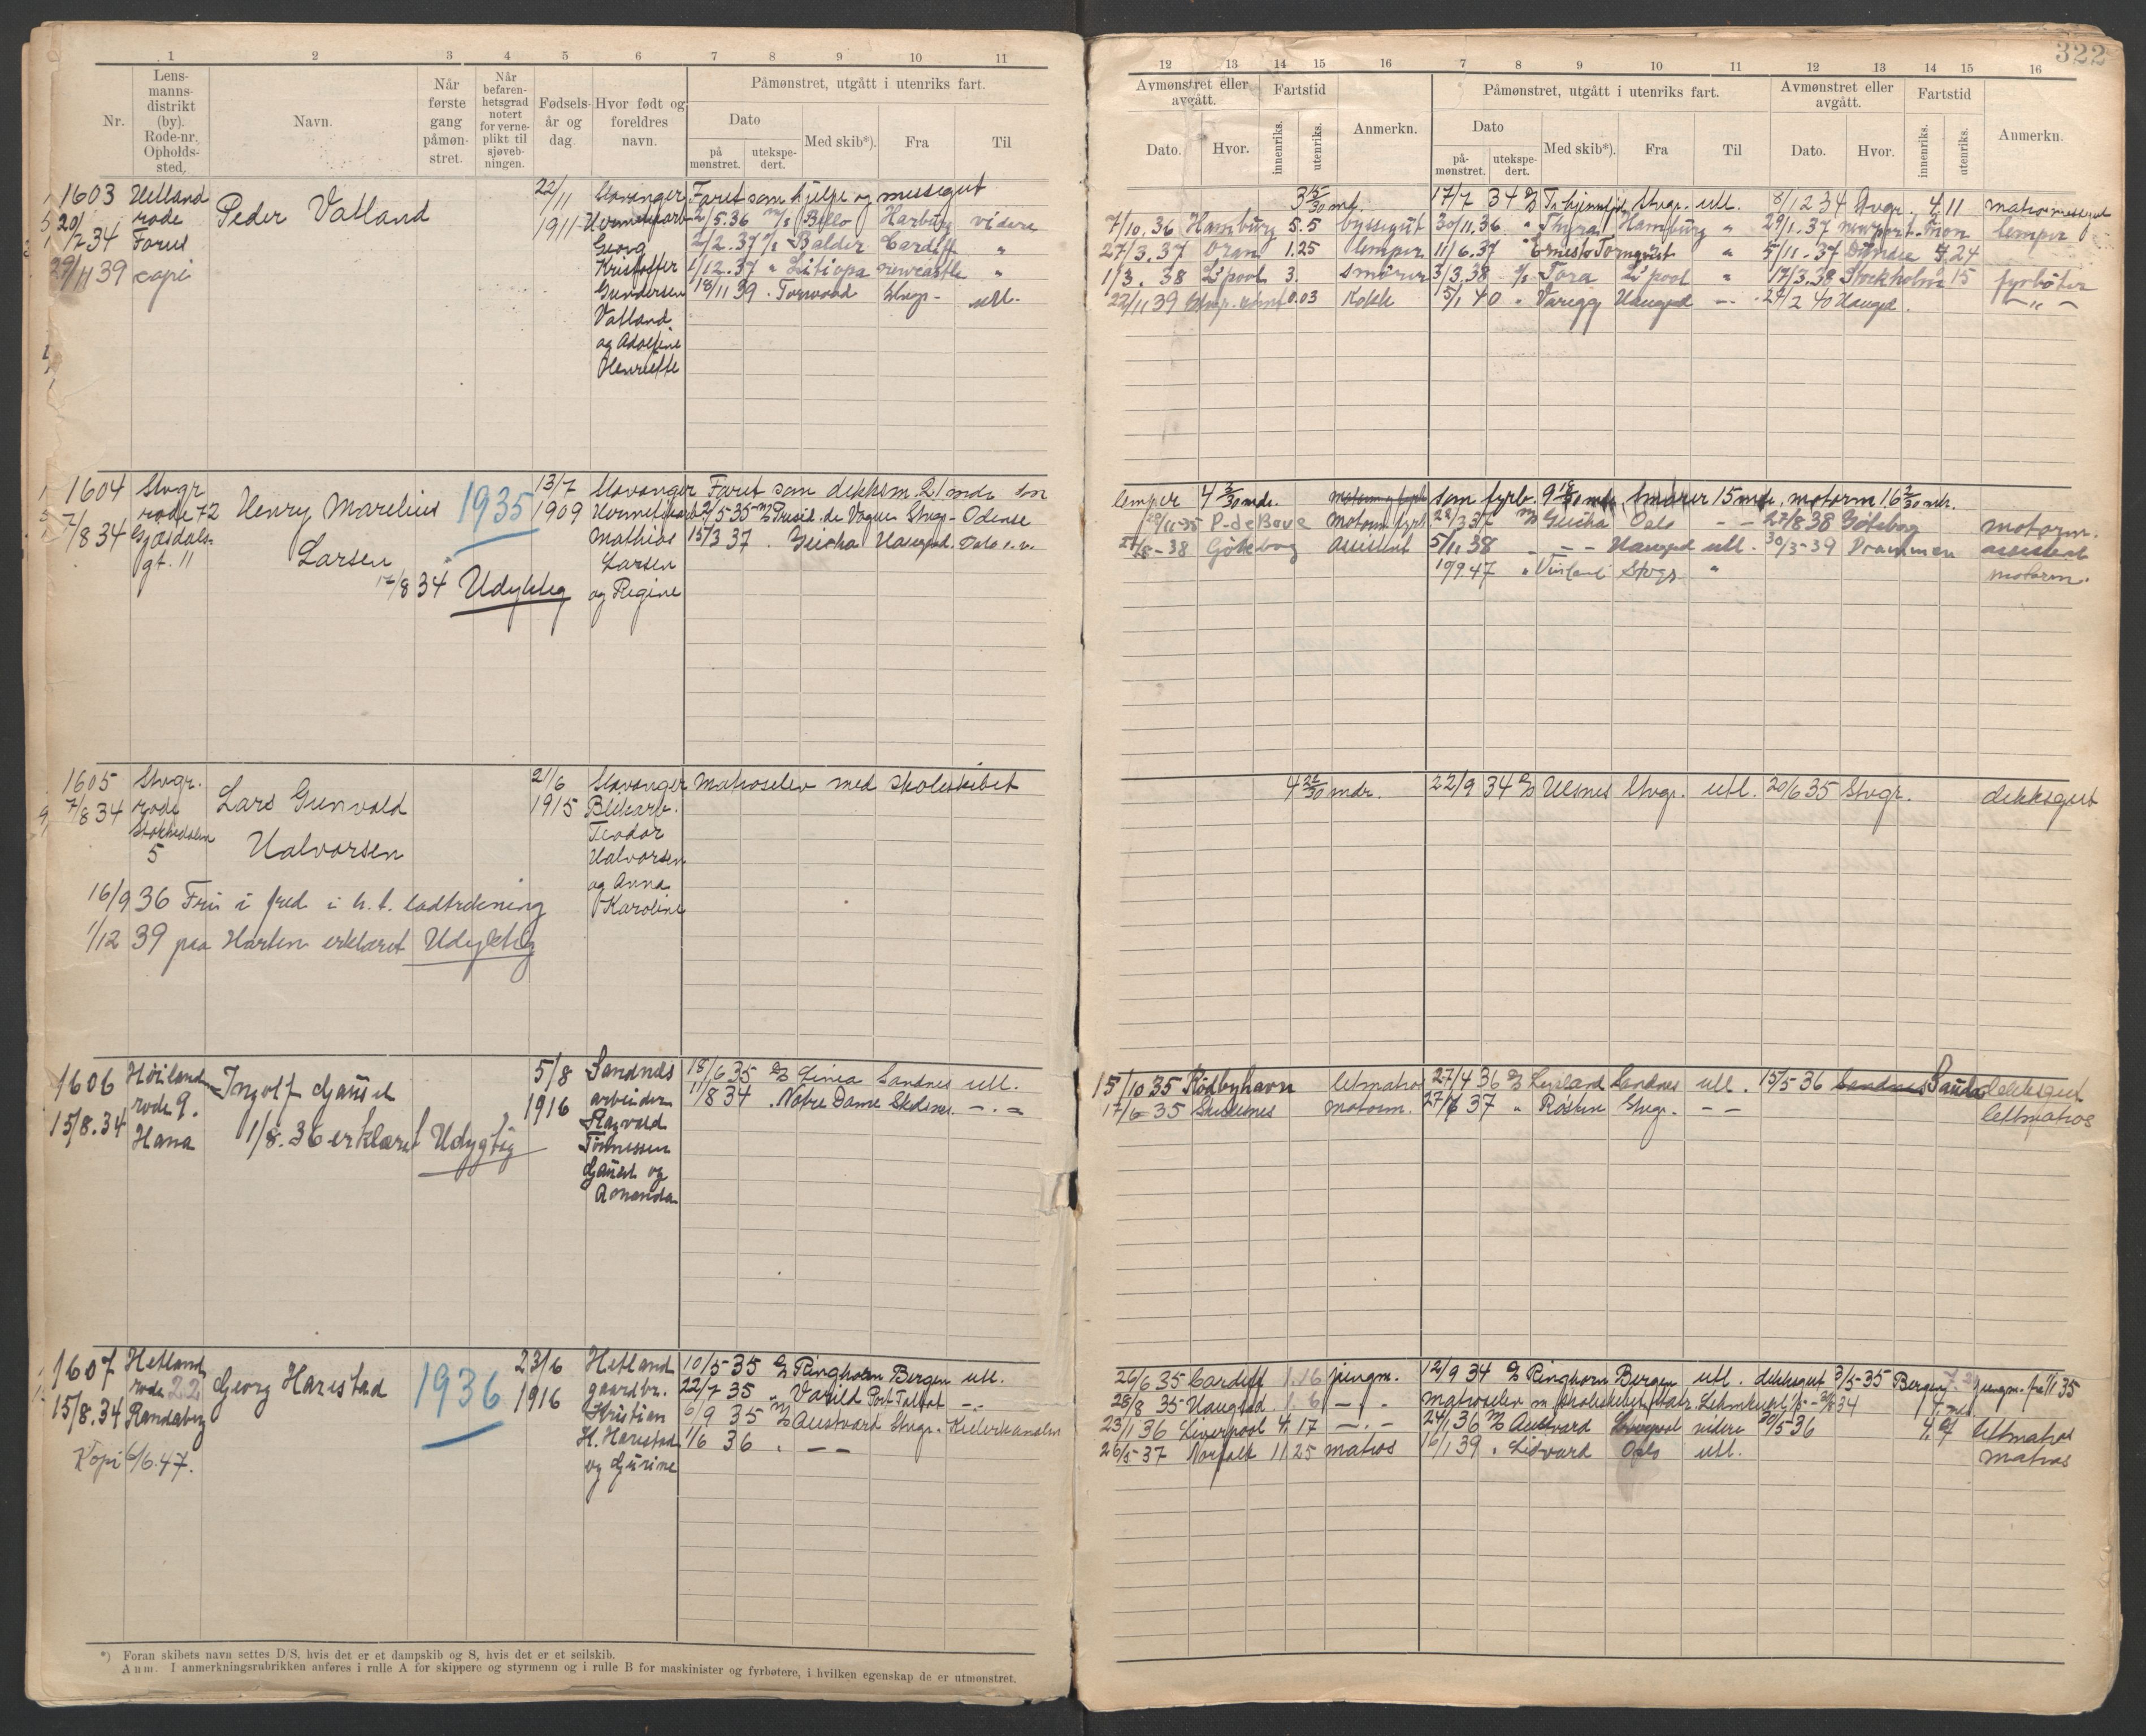 322
1 2 3 4 5 6 7 8 9 10 11
Nr.
Lens-
manns-
distrikt
(by).
Rode-nr.
Opholds-
sted.
Navn.
Når
første
gang
påmøn-
stret.
Når
befaren-
hetsgrad
notert
for verne-
plikt til
sjøveb-
ningen.
Fødsels-
år og
dag
Hvor født og
foreldres
navn.
Påmønstret, utgått i utenriks fart.
Dato
på
mønstret.
utekspe-
dert.
Med skib*).
Fra
Til
1603 Hetland
rode
20/7 34 Forus
29/11 39 copi
Peder Vatland
22/11
1911
Stavanger
Hermetikarb.
Georg
Kristoffer
Gundersen
Vatland
og Adolfine
Henriette
Faret som hjelpe og messegut
2/5.36 Bello Harburg videre
2/2.37 Balder Cardiff "
1/12.37 " Litiopa Newcastle "
18/11 39 . Torwood Stvgr. utl.
1604 Stvgr
7/8 34 rode 72
Gjesdals-
gt. 11
Henry Marelius
Larsen
1935
17/8 34 Udyktig
13/7
1909
Stavanger
Hermetikarb.
Mathias
Larsen
og Regine
Faret som dekksm. 21 mdr
2/5-35 Presid. de Vogue Stvgr - Odense
15/3 37 . Geisha Haugesd. Oslo
1605 Stvgr.
7/8 34 rode
Stokkeholm
5
Lars Gunvald
Halvorsen
16/9 36 Fri i fred i h. t. lodtrekning
1/12 39 paa Horten erklæret Udyktig
21/6
1915
Stavanger
Blikarb.
Teodor
Halvorsen
og Anna
Karoline
Matroselev med skoleskibet
1606 Høiland
rode 9.
15/8.34 Hana
Ingolf Gausel
1/8.36 erklæret Udygtig
5/8
1916
Sandnes
arbeider
Ragvald
Tønnessen
Gausel og
Amanda
18/6 35 Linea Sandnes utl.
11/8 34 . Notre Dame Skudesnes. - . -
1607 Hetland
rode 22
15/8.34 Randaberg
Kopi 6/6.47.
Georg Harestad
1936
23/6
1916
Hetland
gaardbr.
Kristian
H. Harestad
og Gurine
10/5-35 Ringhorn Bergen utl.
22/7 35 " Varild Port Talbot -.-
6/9 35 Austvard Stvgr. Kielerkanalen
1/6 36 . - -
*) Foran skibets navn settes D/S, hvis det er et dampskib og S, hvis det er et seilskib.
Anm. I anmerkningsrubrikken anføres i rulle A for skippere og styrmenn og i rulle B for maskinister og fyrbøtere, i hvilken egenskap de er utmønstret.
12 13 14 15 16 7 8 9 10 11 12 13 14 15 16
Avmønstret eller
avgått.
Dato.
Hvor.
Fartstid
innenriks.
utenriks.
Anmerkn.
Påmønstret, utgått i utenriks fart.
Dato
på-
mønstret.
utekspe-
dert.
Med skib*).
Fra
Til
Avmønstret eller
avgått.
Dato.
Hvor.
Fartstid
innenriks.
utenriks.
Anmerkn.
3 15/30 md. 17/7 34 Stvgr. utl. 8/12 34 Stvgr. 4 11
7/10.36 Hamburg 5.5 byssegut 30/11.36 " Thyra Hamburg " 29/1.37 Newport. Mon lemper
27/3.37 Oran 1.25 lemper 11/6.37 Ernesto Tornquist " 5/11-37 Odense 24
1/3. 38 L'pool 3. smører 3/3.38 Tora L'pool " 17/3.38 Stockholm 15 fyrbøter
22/11 39 Stvgr. 0.03 Kokk 5/1 40 " Varegg Haugsd -. 27/2 40 Haugsd. - " -
lemper 4 3/30 mdr. som fyrb. 9 18/30 mdr. smører 15 mdr, motorm 16 mdr.
P-de Bouc motorm 22/3 37 Geisha Oslo - - 27/8 38 Göteborg motorm.
27/8-38 Göteborg assistent 5/11 38 " - - Haugesd utl. 30/3-39 Drammen assistent
10/9.47 " Stvgr " motorm.
4 22/30 mdr. 22/9 34 Ulsnes Stvgr. utl. 20/6 35 Stvgr. dekksgut
15/10 35 Rødbyhavn letmatros 27/4 36 Sandnes utl. 15/5-36 Sandnes dekksgut
17/6-35 Skudesnes motorm. 27/6 37 " Stvgr. - - lettmatros
26/6 35 Cardiff 1.16 jungm. 12/9 34 Ringhorn Bergen utl. dekksgut 3/5-35 Bergen jungm. fra 1/1 35
28/8 35 Haugesd. 1. 6 - " - matroselev m skoleskibet Statsr. Lehmkuhl
23/1 36 Liverpool 4.17 -.- 24/1 36 Austvard Liverpool videre 30/5-36 letmatros
26/5-37 Norfolk 11 25 matros 16/1 39 . Lidvard Oslo utl. matros